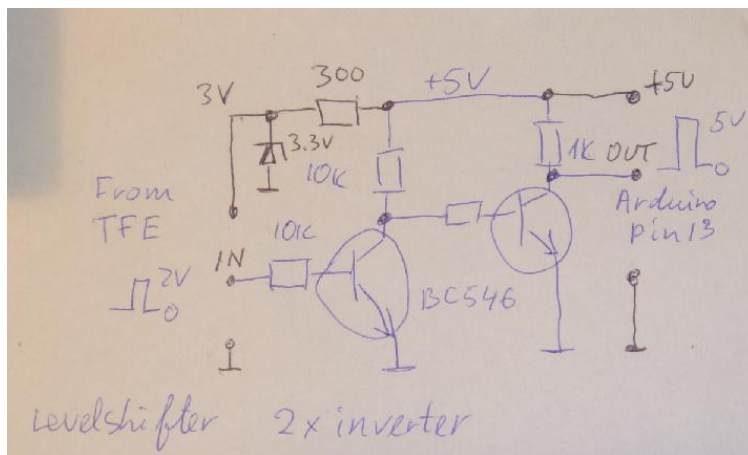 300
3V
+5V
+5V
5V
3.3V
10K
1K OUT
0
From
TFE
10K
Arduino
pin 13
IN
2V
0
BC546
Levelshifter 2x inverter